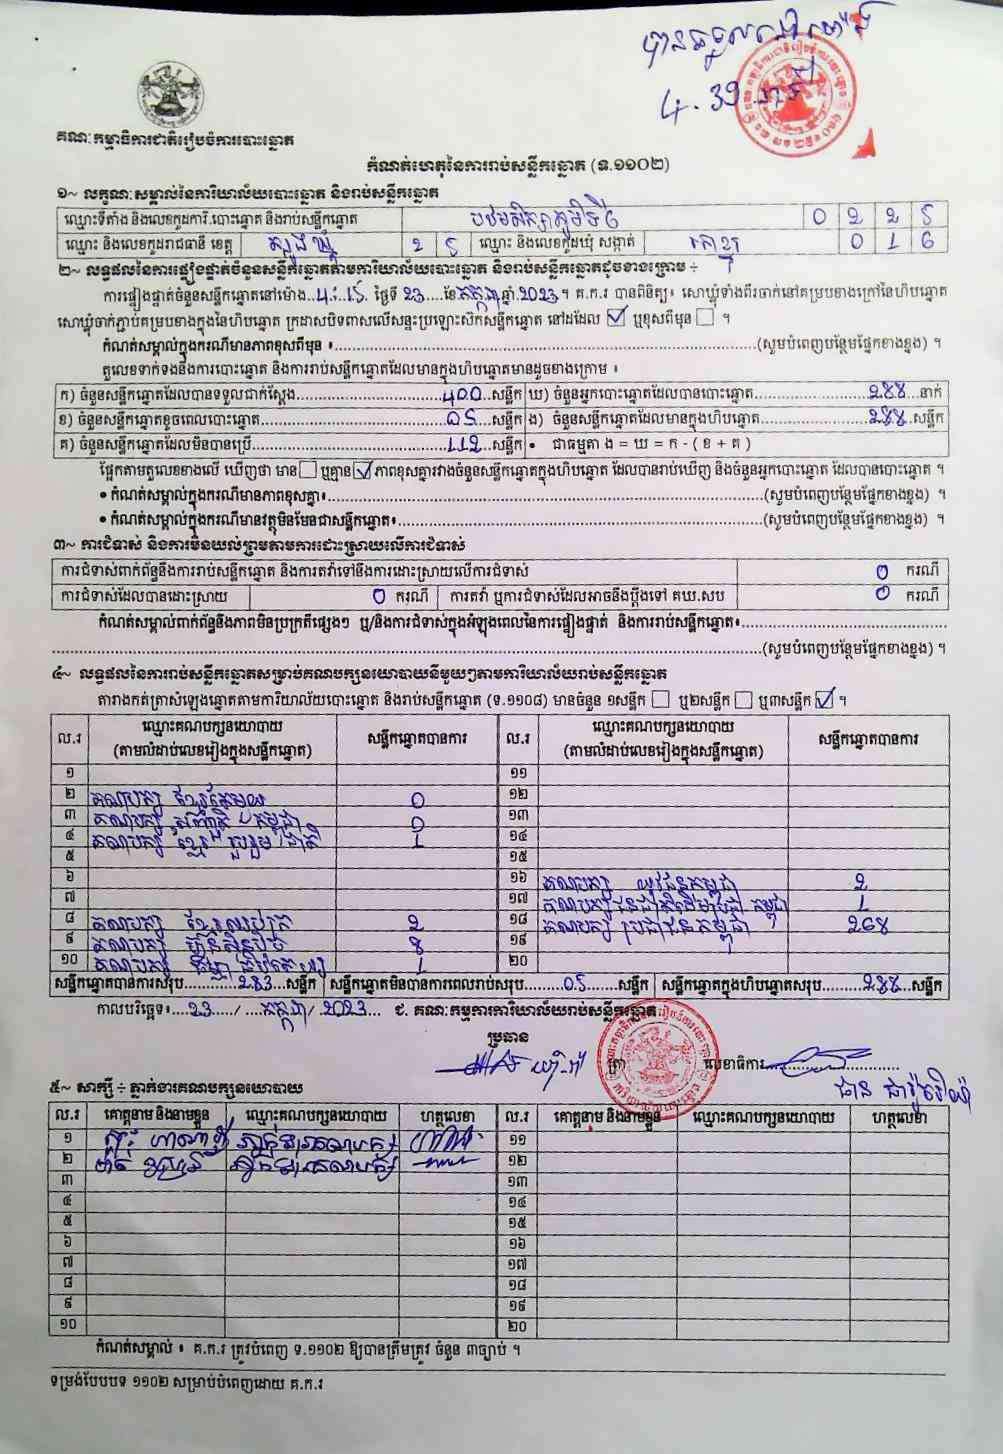 បានទទួលនៅម៉ោង
4.39 នាទី
គណៈកម្មាធិការជាតិរៀបចំការបោះឆ្នោត
កំណត់ហេតុនៃការរាប់សន្លឹកឆ្នោត (ទ.១១០២)
១~ លក្ខណៈសម្គាល់នៃការិយាល័យបោះឆ្នោត និងរាប់សន្លឹកឆ្នោត
ឈ្មោះទីតាំង និងលេខកូដការិ.បោះឆ្នោត និងរាប់សន្លឹកឆ្នោត បឋមសិក្សាភូមិ 0 2 2 5
ឈ្មោះ និងលេខកូដរាជធានី ខេត្ត ត្បូងឃ្មុំ 2 5 ឈ្មោះ និងលេខកូដឃុំ សង្កាត់ 0 1 6
២~ លទ្ធផលនៃការផ្ទៀងផ្ទាត់ចំនួនសន្លឹកឆ្នោតតាមការិយាល័យបោះឆ្នោត និងរាប់សន្លឹកឆ្នោតដូចខាងក្រោម ÷
ការផ្ទៀងផ្ទាត់ចំនួនសន្លឹកឆ្នោតនៅម៉ោង..4:15 ថ្ងៃទី 23....ខែកក្កដាឆ្នាំ.2023។ គ.ក.រ បានពិនិត្យ៖ សោឃ្នុំទាំងពីរចាក់នៅគម្របខាងក្រៅនៃហិបឆ្នោត
សោឃ្នុំចាក់ភ្ជាប់គម្របខាងក្នុងនៃហិបឆ្នោត ក្រដាសបិទពាសលើសន្ទះប្រឡោះស៊កសន្លឹកឆ្នោត នៅដដែល ☑ ឬខុសពីមុន ☐ ។
កំណត់សម្គាល់ក្នុងករណីមានភាពខុសពីមុន ៖..........(សូមបំពេញបន្ថែមផ្នែកខាងខ្នង) ។
តួលេខទាក់ទងនឹងការបោះឆ្នោត និងការរាប់សន្លឹកឆ្នោតដែលមានក្នុងហិបឆ្នោតមានដូចខាងក្រោម ៖
ក) ចំនួនសន្លឹកឆ្នោតដែលបានទទួលជាក់ស្តែង..........400...សន្លឹក ឃ) ចំនួនអ្នកបោះឆ្នោតដែលបានបោះឆ្នោត..........288...នាក់
ខ) ចំនួនសន្លឹកឆ្នោតខូចពេលបោះឆ្នោត..........05....សន្លឹក ង) ចំនួនសន្លឹកឆ្នោតដែលមានក្នុងហិបឆ្នោត..........288...សន្លឹក
គ) ចំនួនសន្លឹកឆ្នោតដែលមិនបានប្រើ..........112...សន្លឹក • ជាធម្មតា ង = ឃ = ក - ( ខ + គ )
ផ្អែកតាមតួលេខខាងលើ ឃើញថា មាន ☐ ឬគ្មាន ☑ ភាពខុសគ្នារវាងចំនួនសន្លឹកឆ្នោតក្នុងហិបឆ្នោត ដែលបានរាប់ឃើញ និងចំនួនអ្នកបោះឆ្នោត ដែលបានបោះឆ្នោត ។
• កំណត់សម្គាល់ក្នុងករណីមានភាពខុសគ្នា៖..........(សូមបំពេញបន្ថែមផ្នែកខាងខ្នង) ។
• កំណត់សម្គាល់ក្នុងករណីមានវត្ថុមិនមែនជាសន្លឹកឆ្នោត៖..........(សូមបំពេញបន្ថែមផ្នែកខាងខ្នង) ។
៣~ ការជំទាស់ និងការមិនយល់ព្រមតាមការដោះស្រាយលើការជំទាស់
ការជំទាស់ពាក់ព័ន្ធនឹងការរាប់សន្លឹកឆ្នោត និងការតវ៉ាទៅនឹងការដោះស្រាយលើការជំទាស់ 0 ករណី
ការជំទាស់ដែលបានដោះស្រាយ 0 ករណី ការតវ៉ា ឬការជំទាស់ដែលអាចនឹងប្តឹងទៅ គឃ.សប 0 ករណី
កំណត់សម្គាល់ពាក់ព័ន្ធនឹងភាពមិនប្រក្រតីផ្សេងៗ ឬ/និងការជំទាស់ក្នុងអំឡុងពេលនៃការផ្ទៀងផ្ទាត់ និងការរាប់សន្លឹកឆ្នោត៖..........
..........(សូមបំពេញបន្ថែមផ្នែកខាងខ្នង) ។
៤~ លទ្ធផលនៃការរាប់សន្លឹកឆ្នោតសម្រាប់គណបក្សនយោបាយនីមួយៗតាមការិយាល័យរាប់សន្លឹកឆ្នោត
តារាងកត់ត្រាសំឡេងឆ្នោតតាមការិយាល័យបោះឆ្នោត និងរាប់សន្លឹកឆ្នោត (ទ.១១០៨) មានចំនួន ១សន្លឹក ☐ ឬ២សន្លឹក ☐ ឬ៣សន្លឹក ☑ ។
ល.រ ឈ្មោះគណបក្សនយោបាយ (តាមលំដាប់លេខរៀងក្នុងសន្លឹកឆ្នោត) សន្លឹកឆ្នោតបានការ ល.រ ឈ្មោះគណបក្សនយោបាយ (តាមលំដាប់លេខរៀងក្នុងសន្លឹកឆ្នោត) សន្លឹកឆ្នោតបានការ
១ ១១
២ គណបក្ស ខ្មែរតែមួយ 0 ១២
៣ គណបក្ស សញ្ជាតិកម្ពុជា 0 ១៣
៤ គណបក្ស ខ្មែរ រួបរួមជាតិ 1 ១៤
៥ ១៥
៦ ១៦ គណបក្ស យុវជនកម្ពុជា 2
៧ ១៧ គណបក្ស កម្ពុជា 1
៨ គណបក្ស ខ្មែរ 2 ១៨ គណបក្ស ប្រជាជនកម្ពុជា 268
៩ គណបក្ស ហ៊្វុនស៊ិនប៉ិច 8 ១៩
១០ គណបក្ស 1 ២០
សន្លឹកឆ្នោតបានការសរុប........283...សន្លឹក សន្លឹកឆ្នោតមិនបានការពេលរាប់សរុប........05.....សន្លឹក សន្លឹកឆ្នោតក្នុងហិបឆ្នោតសរុប........288...សន្លឹក
កាលបរិច្ឆេទ៖...23...../ ...កក្កដា/ 2023... ជ. គណៈកម្មការការិយាល័យរាប់សន្លឹកឆ្នោត
ប្រធាន
ត្រា លេខាធិការ
៥~ សាក្សី ÷ ភ្នាក់ងារគណបក្សនយោបាយ
ល.រ គោត្តនាម និងនាមខ្លួន ឈ្មោះគណបក្សនយោបាយ ហត្ថលេខា ល.រ គោត្តនាម និងនាមខ្លួន ឈ្មោះគណបក្សនយោបាយ ហត្ថលេខា
១ ១១
២ ១២
៣ ១៣
៤ ១៤
៥ ១៥
៦ ១៦
៧ ១៧
៨ ១៨
៩ ១៩
១០ ២០
កំណត់សម្គាល់ ៖ គ.ក.រ ត្រូវបំពេញ ទ.១១០២ ឱ្យបានត្រឹមត្រូវ ចំនួន ៣ច្បាប់ ។
ទម្រង់បែបបទ ១១០២ សម្រាប់បំពេញដោយ គ.ក.រ